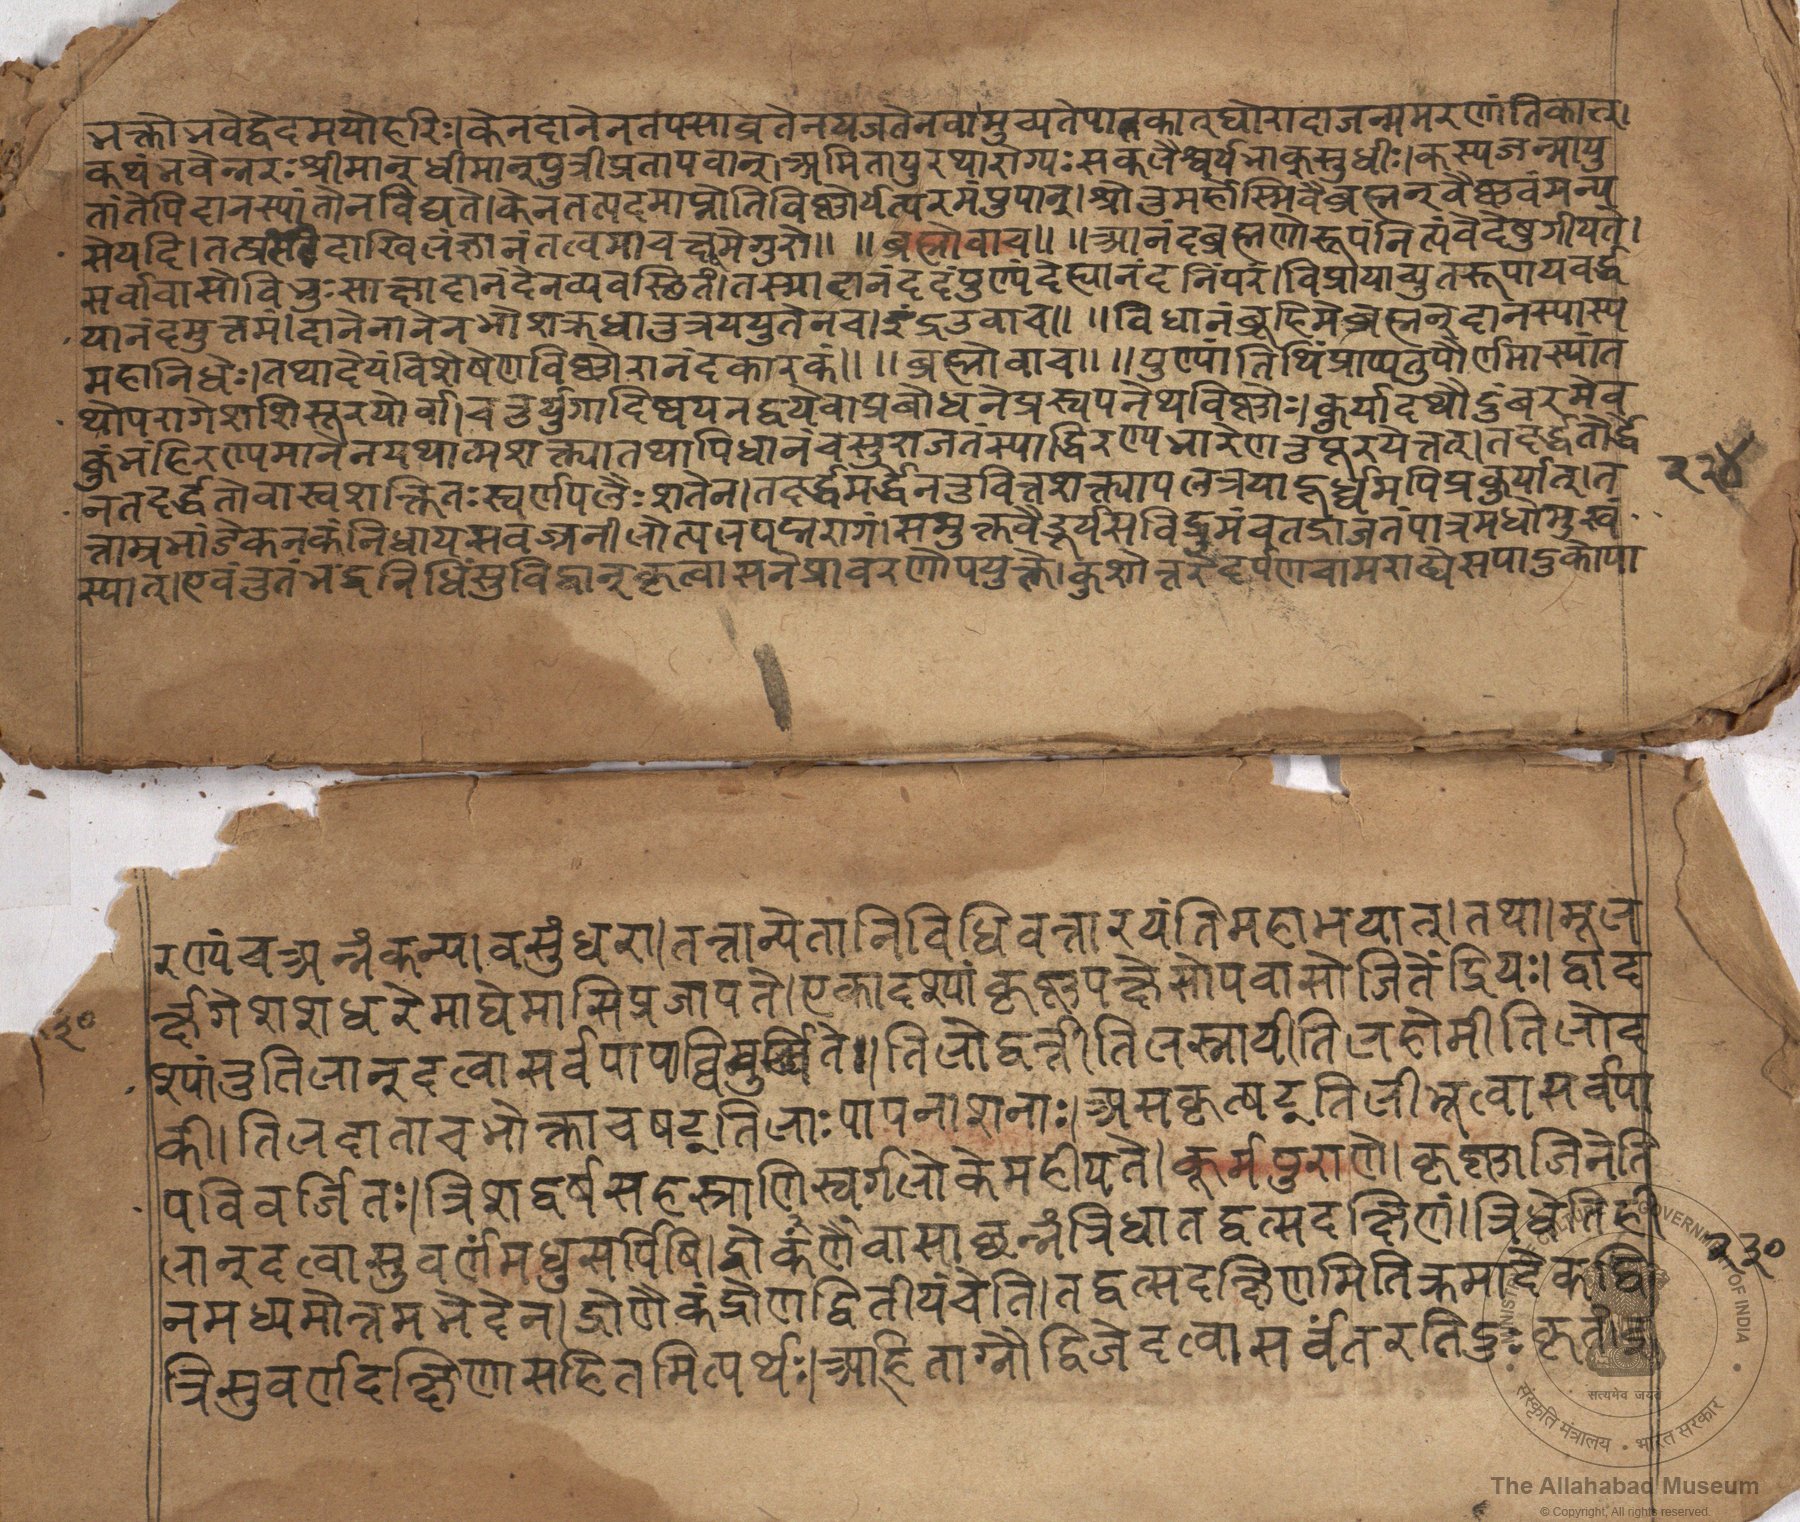 भक्तो भवेद्वेदमयो हरिः। केन दानेन तपसा व्रतेन यजतेन वा मुच्यते पातकात् घोरादाजन्ममरणांतिकात्।
कथं भवेन्नरः श्रीमान् धीमान् पुत्री प्रतापवान्। अमितायुरथारोग्यः सकलैश्वर्यभाक् सुधीः। कस्य जन्मायु
तांतेपि दानस्यांतो न विद्यते। केन तत्पदमाप्नोति विष्णोर्यत्परमं पुमान्। श्रोतुमर्होस्मि वै ब्रह्मन् वैष्णवं मन्य
से यदि। ज्ञानं तत्वमाचक्ष्व मे गुरो॥ ॥ब्रह्मोवाच॥ ॥आनंदब्रह्मणो रूपं नित्यं वेदेषु गीयते।
सर्वावासो विभुः साक्षाद्दानंदेन व्यवस्थितं। तस्मादानंददं पुण्यं देह्यानंदनिधिं परं। विप्रायाच्युतरूपाय वर्द्ध
यानंदमुत्तमं। दानेनानेन भो शक्र धातुत्रययुतेन च। इंद्र उवाच॥ ॥विधानं ब्रूहि मे ब्रह्मन् दानस्यास्य
महानिधेः। तथा देयं विशेषेण विष्णोरानंदकारकं॥ ॥ब्रह्मोवाच॥ ॥पुण्यां तिथिं प्राप्य तु पौर्णमास्यां त
थोपरागे शशिसूरयोर्वा। चतुर्युगादिष्वयनद्वये वा प्रबोधने प्रस्वपनेथ विष्णोः। कुर्यादथौदुंबरमेव
कुंभं हिरण्यमानेन यथात्मशक्त्या तथापिधानं च सुराजतं स्याद्धिरण्यभारेण तु पूरयेत्तत्। तदर्द्धतोर्द्धे
न तदर्द्धतो वा स्वशक्तितः स्वर्णपलैः शतेन। तदर्द्धमर्द्धेन तु वित्तशक्त्या पलत्रयादूर्ध्वमपि प्रकुर्यात्। त
त्ताम्रभांडे कनकं निधाय सवज्रनीलोत्पलपद्मरागं। समुक्तवैडूर्यसविद्रुमं च तद्राजतं पात्रमधोमुखं
स्यात्। एवं तु तं भद्रनिधिं सुविद्वान् कृत्वासने प्रावरणोपयुक्ते। कुशोत्तरे दर्पणचामराढ्ये सपादुकोपा
२२४
रण्यं च अन्नं कन्या वसुंधरा। तत्रान्येतानि विधिवत्तारयंति महाभयात्। तथा। मूल
र्क्षगे शशधरे माघे मासि प्रजापते। एकादश्यां कृष्णपक्षे सोपवासो जितेंद्रियः। द्वाद
२३०
श्यां तु तिलान् दत्वा सर्वपापा तिलोद्वर्त्ती तिलस्नायी तिलहोमी तिलोद
की। तिलदाता च भोक्ता च षट्तिलाः पापनाशनाः। असकृत्षट्तिलीभूत्वा सर्वपा
पविवर्जितः। त्रिंशद्वर्षसहस्राणि स्वर्गलोके महीयते। कूर्मपुराणे। कृष्णाजिने ति
लान् दत्वा सुवर्णं मधुसर्पिषि। द्रोकंणैवासाच्छन्नं त्रिधा तद्वत्सदक्षिणं। त्रिधेति ही
२३०
नमध्यमोत्तमभेदेन। द्रोणैकं द्रोणद्वितीयं चेति। तद्वत्सदक्षिणमिति क्रमादेकद्वि
त्रिसुवर्णदक्षिणासहितमित्यर्थः। आहिताग्नौ द्विजे दत्वा सर्वं तरति दुःकृतं।
GOVERNMENT OF INDIA
सत्यमेव जयते
संस्कृति मंत्रालय • भारत सरकार
The Allahabad Museum
© Copyright, All rights reserved.